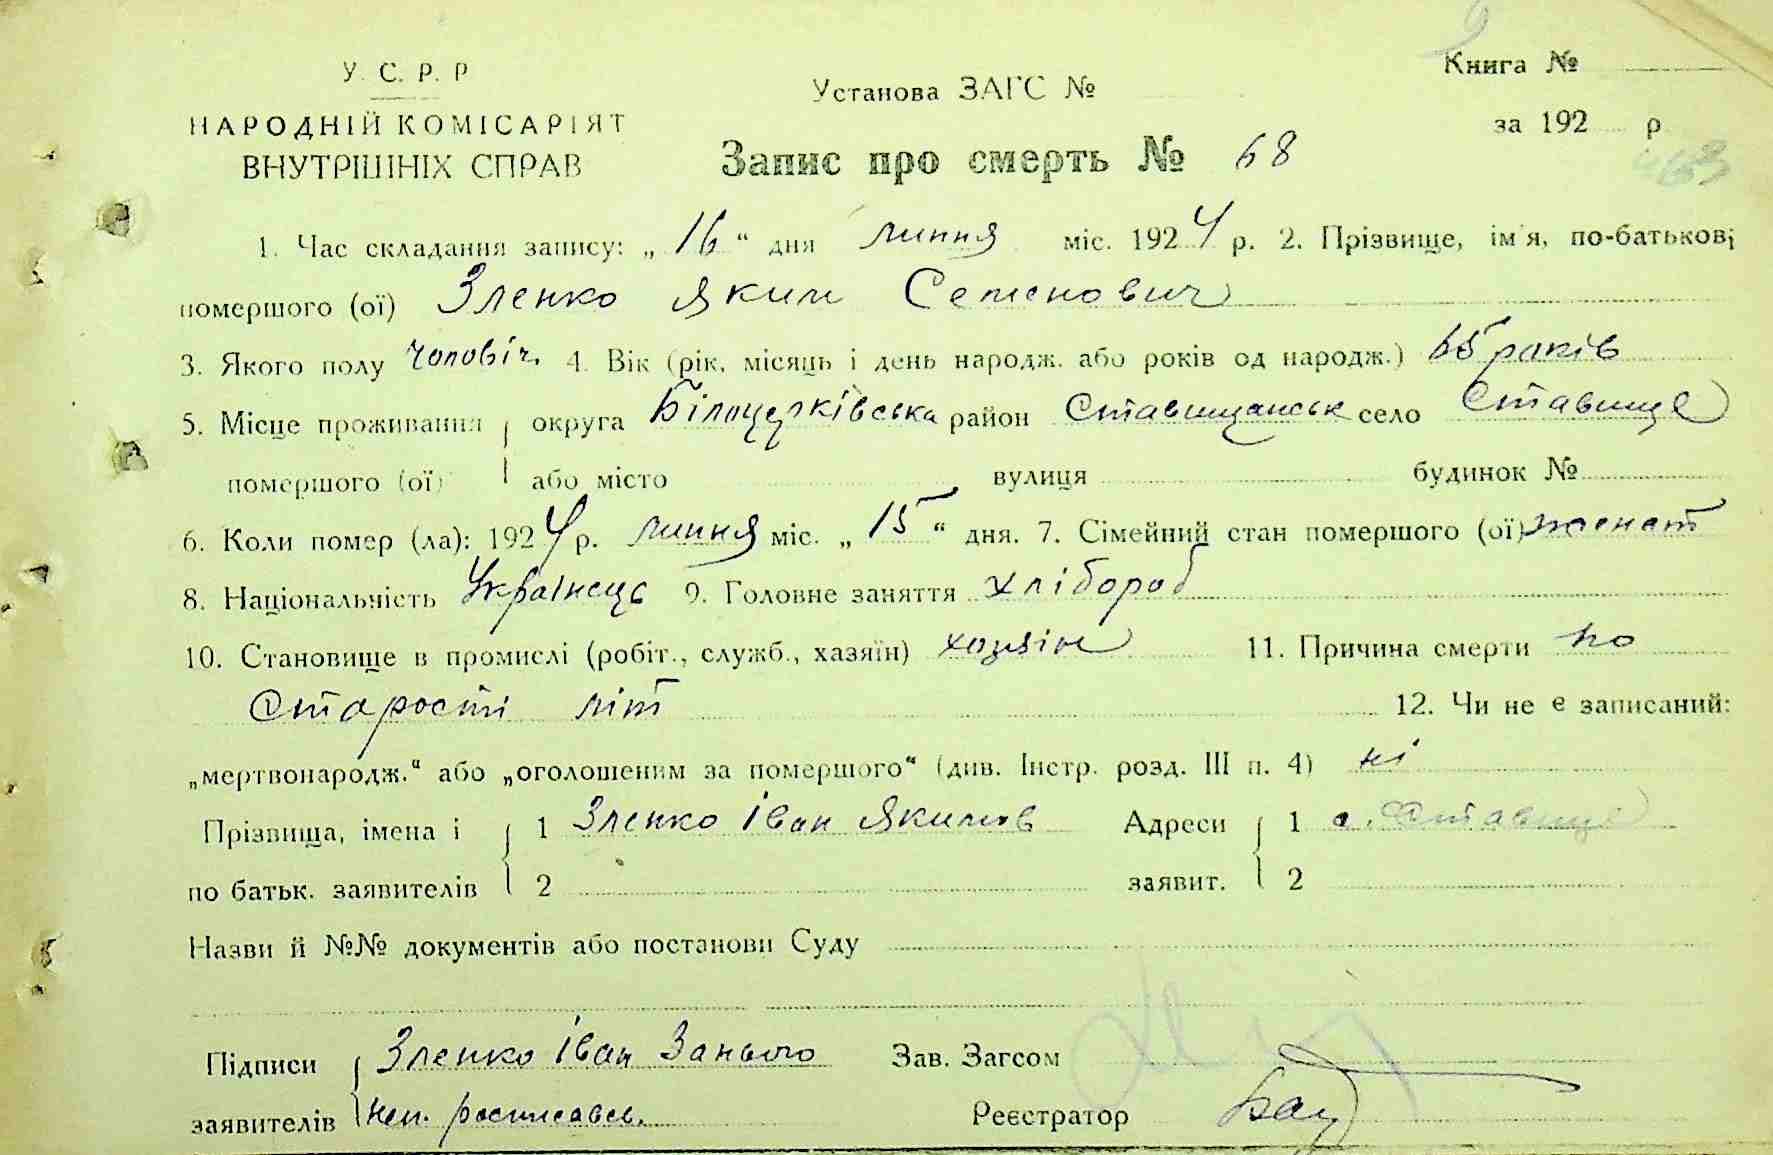 У. С. Р. Р
НАРОДНІЙ КОМІСАРІЯТ
ВНУТРІШНІХ СПРАВ
Установа ЗАГС №
Книга №
за 192 р.
Запис про смерть № 68
1. Час складання запису: „16“ дня липня міс. 1924 р. 2. Прізвище, ім'я, по-батькові
помершого (ої) Зленко Яким Семенович
3. Якого полу чоловіч. 4. Вік (рік, місяць і день народж. або років од народж.) 65 років
5. Місце проживання округа Білоцерківська район Ставищанськ село Ставище
помершого (ої) або місто вулиця будинок №
6. Коли помер (ла): 1924 р. липня міс. „15“ дня. 7. Сімейний стан помершого (ої) женат
8. Національність Українець 9. Головне заняття хлібороб
10. Становище в промислі (робіт., служб., хазяїн) хазяін 11. Причина смерти по
старости літ 12. Чи не є записаний:
„мертвонародж.“ або „оголошеним за помершого“ (див. Інстр. розд. III п. 4) ні
Прізвища, імена і 1 Зленко Іван Якимов Адреси 1 с. Ставище
по батьк. заявителів 2 заявит. 2
Назви й №№ документів або постанови Суду
Підписи Зленко Іван За нього Зав. Загсом
заявителів росписавсь. Реєстратор